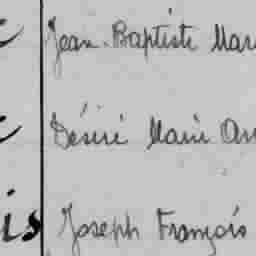 Jean-Baptiste Mar
Désiré Marie An
is Joseph François